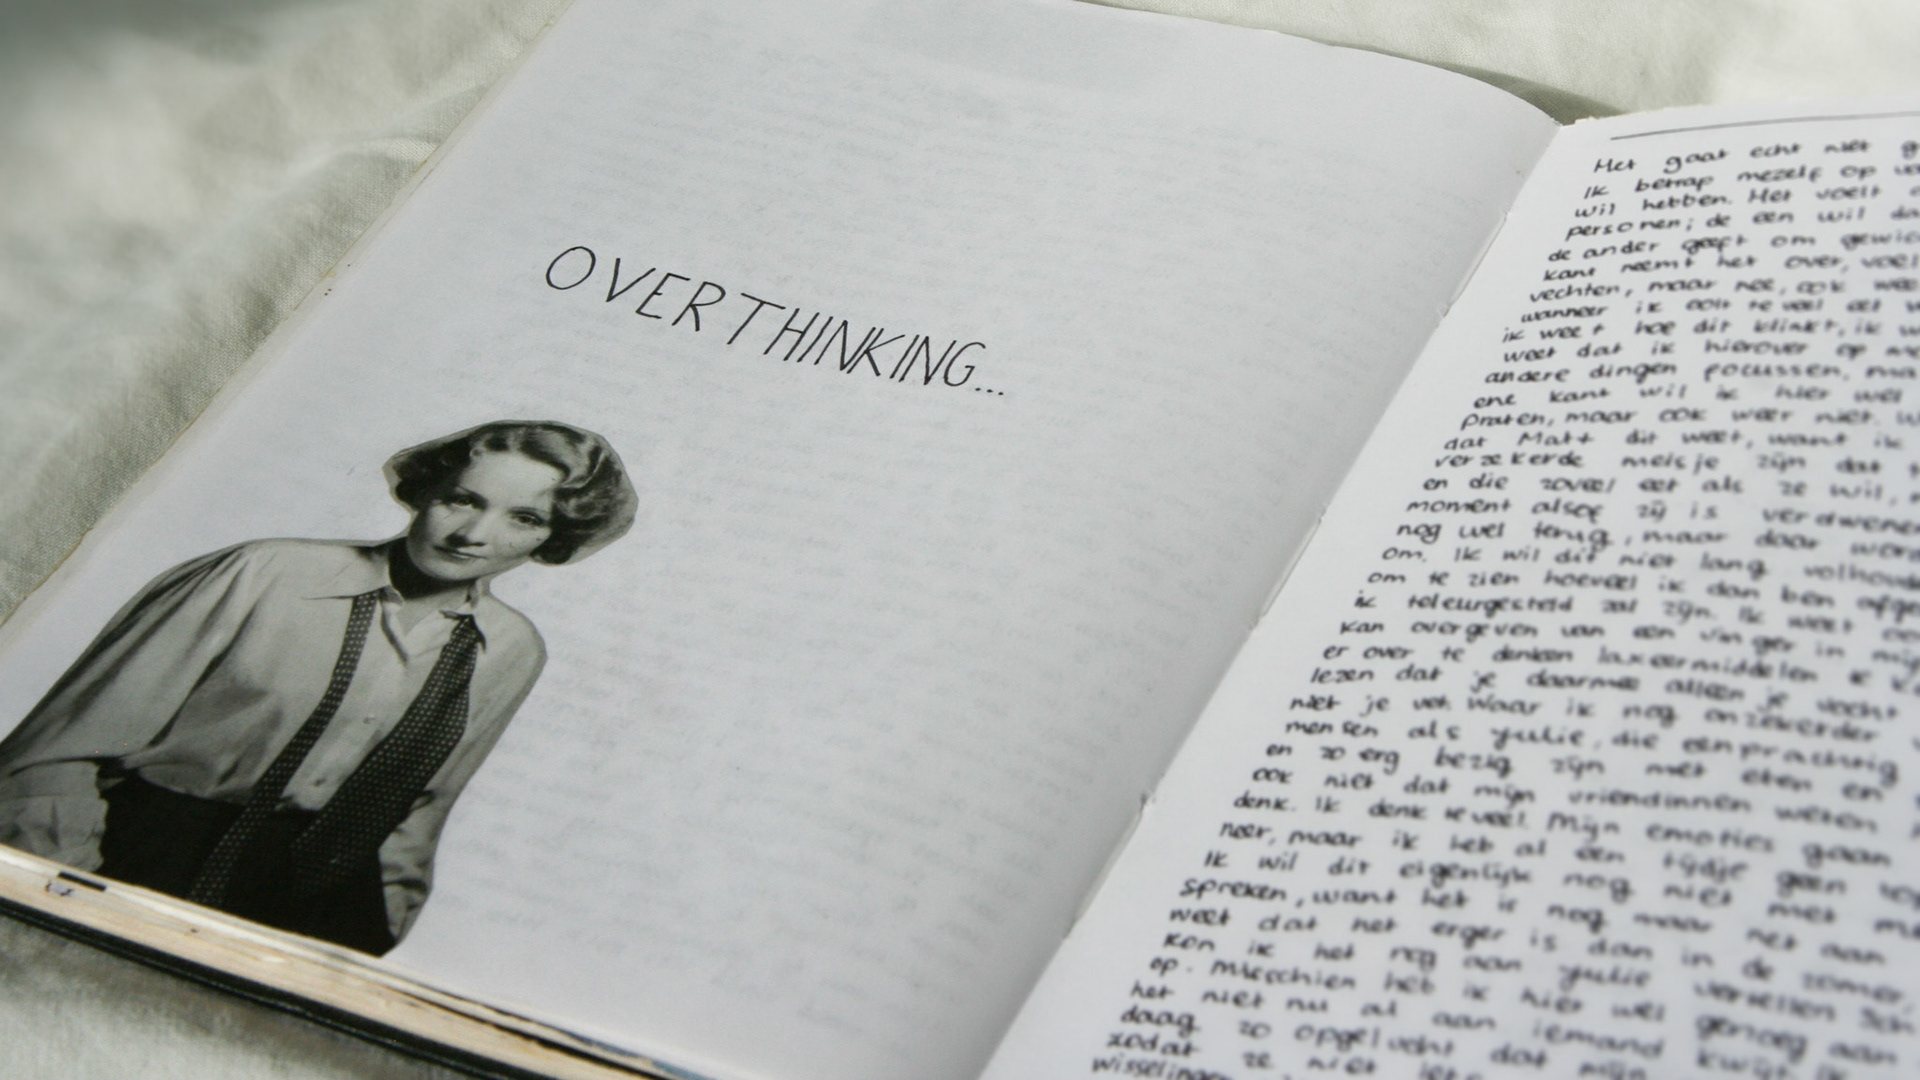 OVERTHINKING...
Het gaat echt niet
Ik betrap mezelf op
wil hebben. Het voelt
personen; de een wil
de ander geeft om
kant neemt het over,
vechten, maar nee, ook
wanneer ik ooit te veel eet
ik weet hoe dit klinkt, ik
weet dat ik hierover op
andere dingen focussen,
ene kant wil ik hier wel
praten, maar ook weer niet.
dat Matt dit weet, want ik
verzekerde meisje zijn dat
en die zoveel eet als ze wil,
moment alsof zij is verdwenen
nog wel terug, maar daar
om. Ik wil dit niet lang
om te zien hoeveel ik dan ben
ik teleurgesteld zal zijn. Ik weet
kan overgeven van een vinger in
er over te denken laxeermiddelen
lezen dat je daarmee alleen je vocht
niet je vet. Waar ik nog onzekerder
mensen als Yulie, die een prachtig
en zo erg bezig zijn met eten en
ook niet dat mijn vriendinnen weten
denk. Ik denk teveel. Mijn emoties gaan
neer, maar ik heb al een tijdje geen
Ik wil dit eigenlijk nog niet met
spreken, want het is nog maar net aan
weet dat het erger is dan in de zomer,
kon ik het nog aan Yulie vertellen
op. Misschien heb ik hier wel genoeg aan
het niet nu al aan iemand kwijt
daag zo opgelucht dat mijn
zodat ze niet